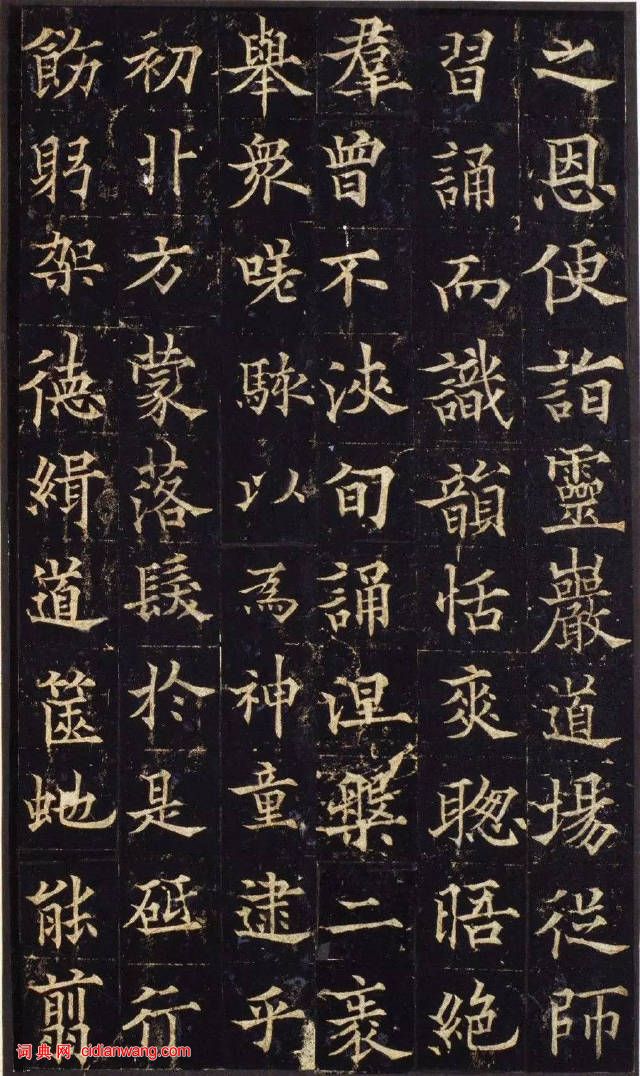 之恩便詣靈巖道場從師
習誦而識韻恬爽聦晤絕
羣曾不浹旬誦涅槃二袠
舉衆嗟駭以爲神童逮乎
初丱方蒙落髮於是砥行
飭躬架德緝道篋虵能翦
词典网 cidianwang.com